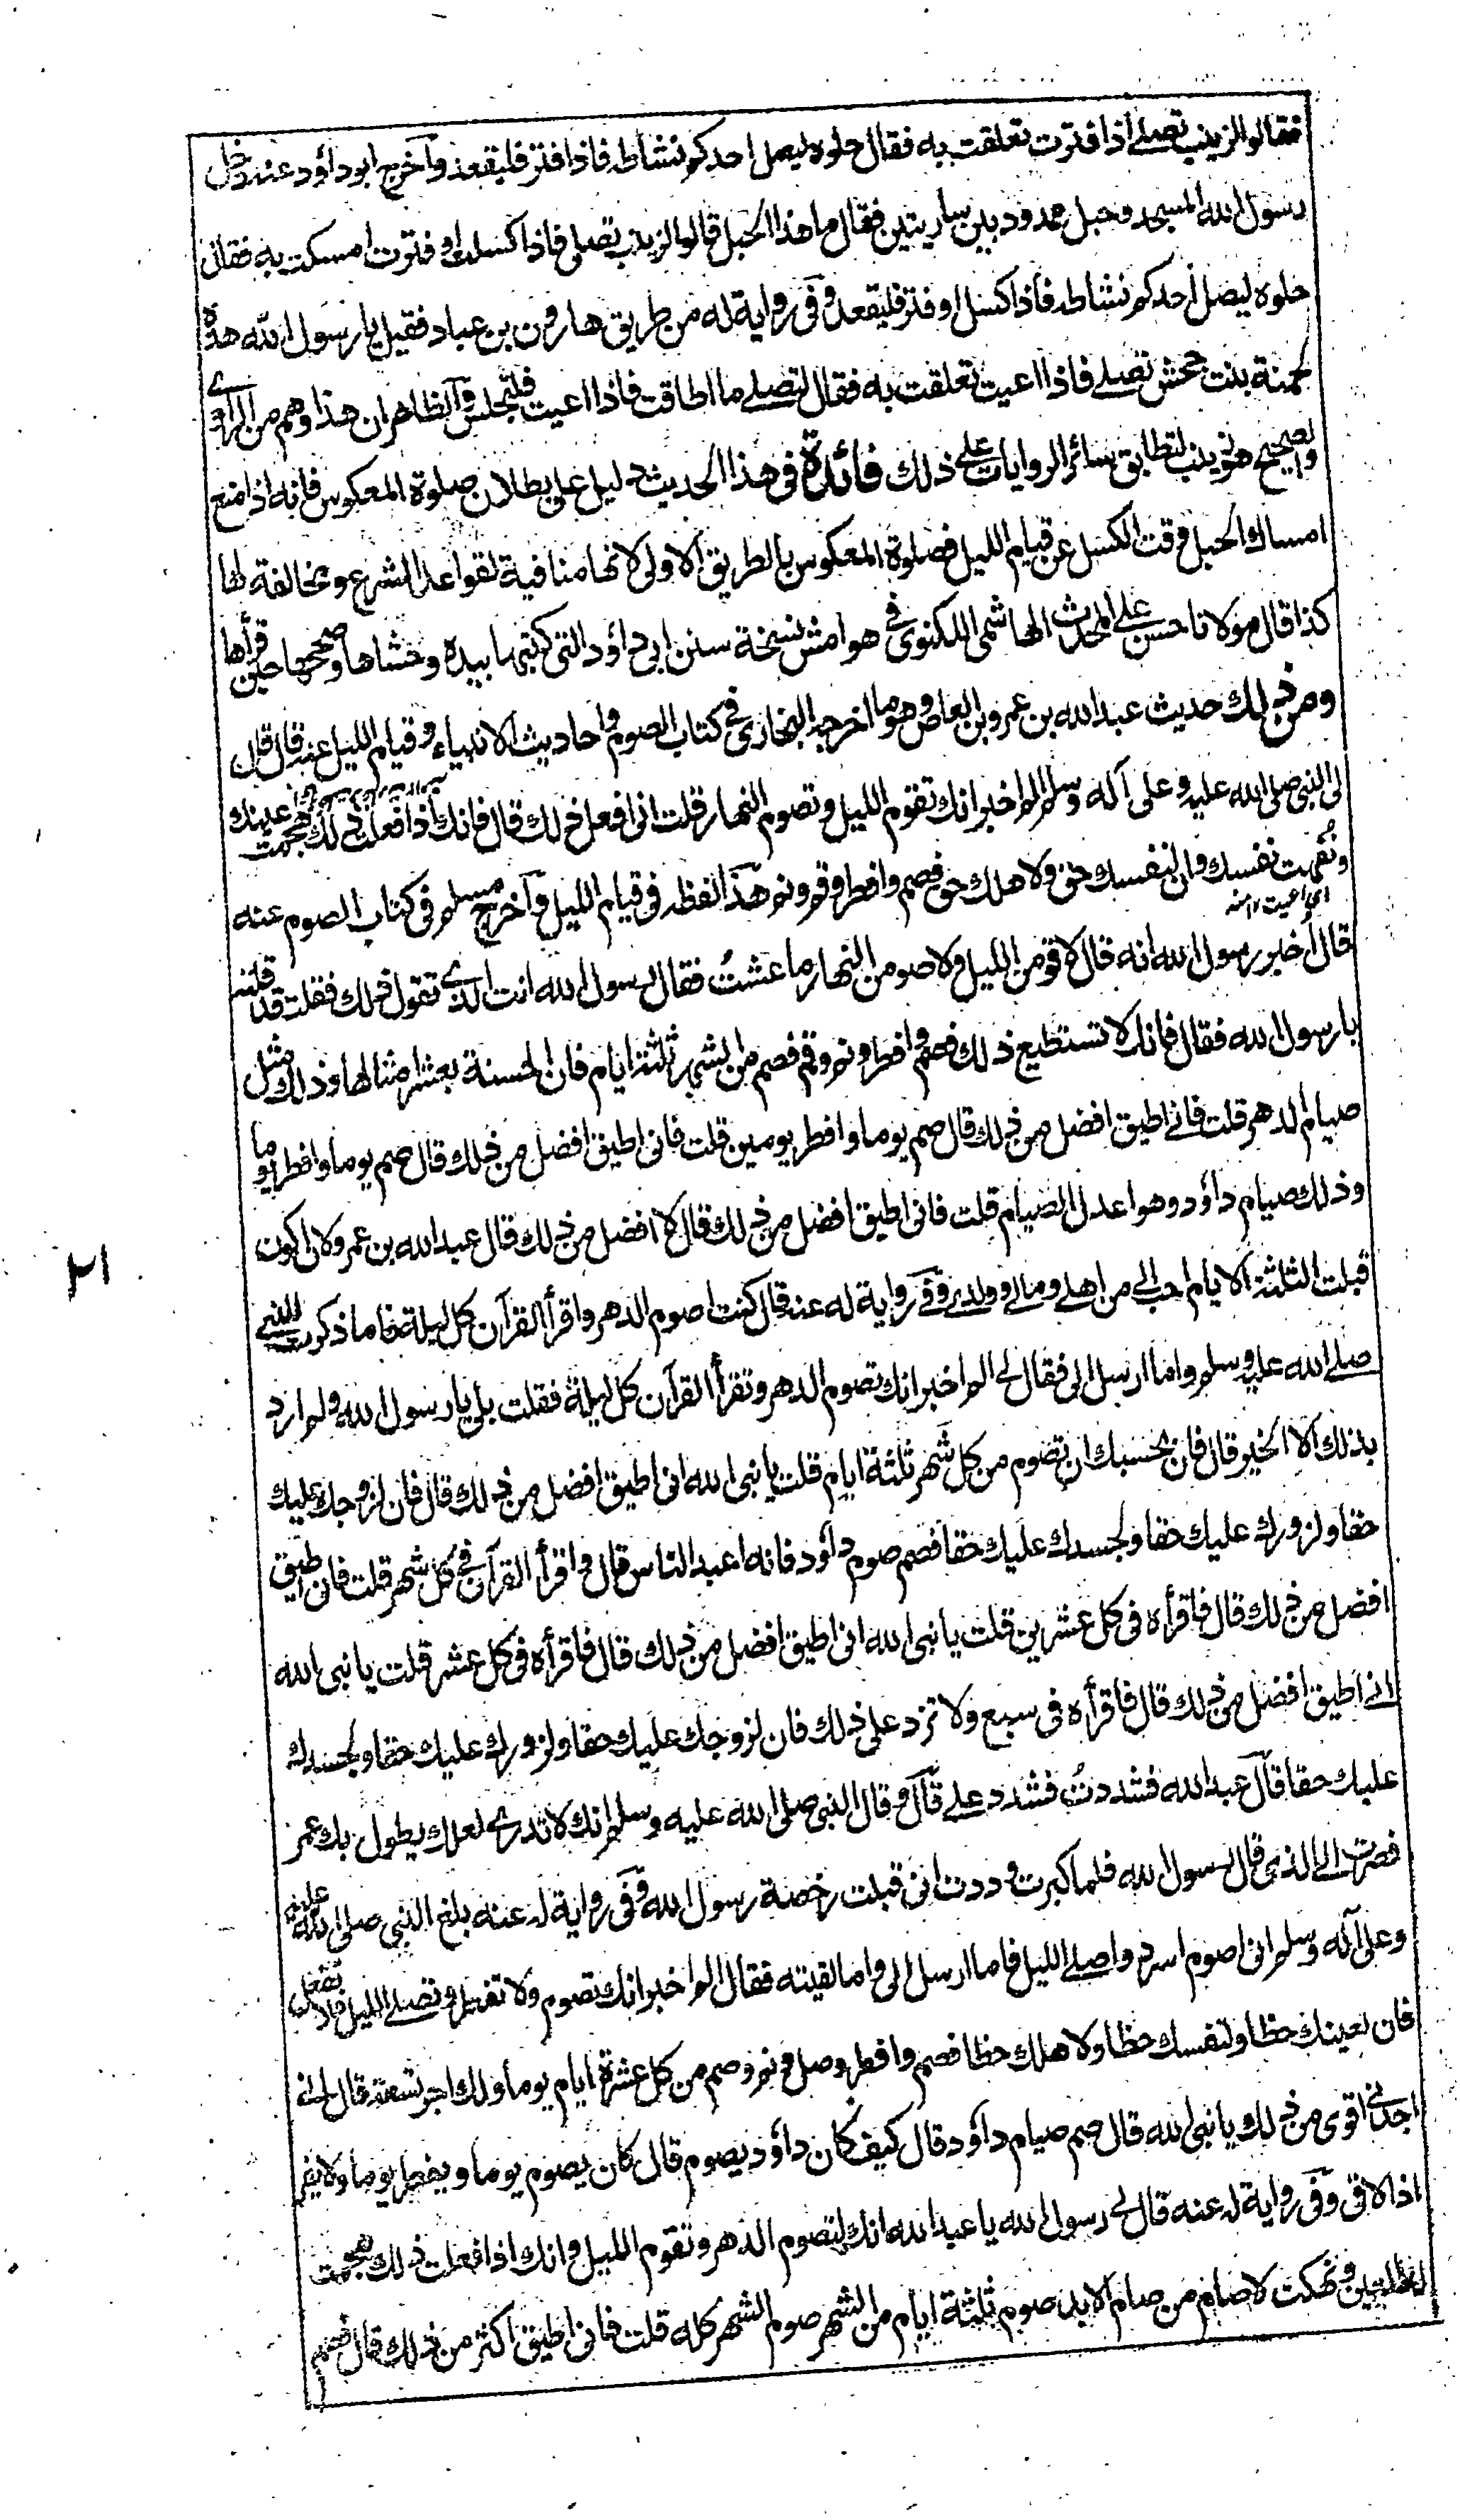 فقالوا لزينب تصلے اذا فترت تعلقت به فقال حلوه ليصل احدكم نشاطه فاذا فتر فليقعد وآخرج ابو داؤد عنه دخل
رسول الله المسجد وحبل ممدود بين ساريتين فقال ما هذا الحبل قالوا لزينب تصلى فاذا كسلت او فترت امسكت به فقال
حلوه ليصل احدكم نشاطه فاذا كسل او فتر فليقعد وفى رواية له من طريق هارون بن عباد فقيل يا رسول الله هذه
حمنة بنت جحش تصلے فاذا اعيت تعلقت به فقال لتصلے ما اطاقت فاذا اعيت فلتجلس والظاهر ان هذا وهم من الراوے
والصحيح هو زينب لتطابق سائر الروايات علے ذلك فائدة فى هذا الحديث دليل على بطلان صلوة المعكوس فانه اذا منع
امساك الحبل وقت الكسل عن قيام الليل فصلوة المعكوس بالطريق الاولى لانها منافية لقواعد الشرع ومخالفة لها
كذا قال مولانا حسن علے المحدث الهاشمى اللكنوى فى هوامش نسخة سنن ابى داؤد التى كتبها بيده وحشاها وصححها حين قرأها
ومن ذلك حديث عبد الله بن عمرو بن العاص وهو ما اخرجه البخارى فى كتاب الصوم واحاديث الانبياء وقيام الليل عنه قال قال
لى النبى صلى الله عليه وعلى آله وسلم الم اخبر انك تقوم الليل وتصوم النهار قلت انى افعل ذلك قال فانك اذا فعلت ذلك هجمت عينك
ونفهت نفسك وان لنفسك حق ولاهلك حق فصم وافطر وقم ونم هذا لفظه فى قيام الليل وآخرج مسلم فى كتاب الصوم عنه
اى اعيت ١٢ منه
قال اخبر رسول الله انه قال لاقومن الليل ولاصومن النهار ما عشتُ فقال رسول الله انت الذے تقول ذلك فقلت قد قلته
يا رسول الله فقال فانك لا تستطيع ذلك فصم وافطر ونم وقم فصم من الشهر ثلثة ايام فان الحسنة بعشر امثالها وذلك مثل
صيام الدهر قلت فانے اطيق افضل من ذلك قال صم يوما وافطر يومين قلت فانى اطيق افضل من ذلك قال صم يوما وافطر يوما
وذلك صيام داؤد وهو اعدل الصيام قلت فانى اطيق افضل من ذلك قال لا افضل من ذلك قال عبد الله بن عمر ولان اكون
قبلت الثلثة الايام احب الى من اهلے ومالے وولدے وفى رواية له عنه قال كنت اصوم الدهر واقرأ القرآن كل ليلة فاما ذكرت للنبے
صلے الله عليه وسلم واما ارسل الى فقال لے الم اخبر انك تصوم الدهر وتقرأ القرآن كل ليلة فقلت بلى يا رسول الله ولم ارد
بذلك الا الخير قال فان بحسبك ان تصوم من كل شهر ثلثة ايام قلت يا نبى الله انى اطيق افضل من ذلك قال فان لزوجك عليك
حقا ولزورك عليك حقا ولجسدك عليك حقا فصم صوم داؤد فانه اعبد الناس قال واقرأ القرآن فى كل شهر قلت فانى اطيق
افضل من ذلك قال فاقرأه فى كل عشرين قلت يا نبى الله انى اطيق افضل من ذلك قال فاقرأه فى كل عشر قلت يا نبى الله
انے اطيق افضل من ذلك قال فاقرأه فى سبع ولا تزد على ذلك فان لزوجك عليك حقا ولزورك عليك حقا ولجسدك
عليك حقا قال عبد الله فشددتُ فشدد علے قال وقال النبى صلى الله عليه وسلم انك لا تدرے لعلك يطول بك عمر
فصرت الى الذى قال رسول الله فلما كبرت وددت انى قبلت رخصة رسول الله وفى رواية له عنه بلغ النبى صلى الله عليه
وعلى آله وسلم انى اصوم اسرد واصلے الليل فاما ارسل الى واما لقيته فقال الم اخبر انك تصوم ولا تفطر وتصلے الليل فلا تفعل
فان لعينك حظا ولنفسك حظا ولاهلك حظا فصم وافطر وصل ونم وصم من كل عشرة ايام يوما ولك اجر تسعة قال انى
اجدنے اقوى من ذلك يا نبى الله قال صم صيام داؤد قال كيف كان داؤد يصوم قال كان يصوم يوما ويفطر يوما ولا يفر
اذا لاقى وفى رواية له عنه قال لے رسول الله يا عبد الله انك لتصوم الدهر وتقوم الليل وانك اذا فعلت ذلك هجمت
ونهكت لا صام من صام الابد صوم ثلثة ايام من الشهر صوم الشهر كله قلت فانى اطيق اكثر من ذلك قال فصم
٢١